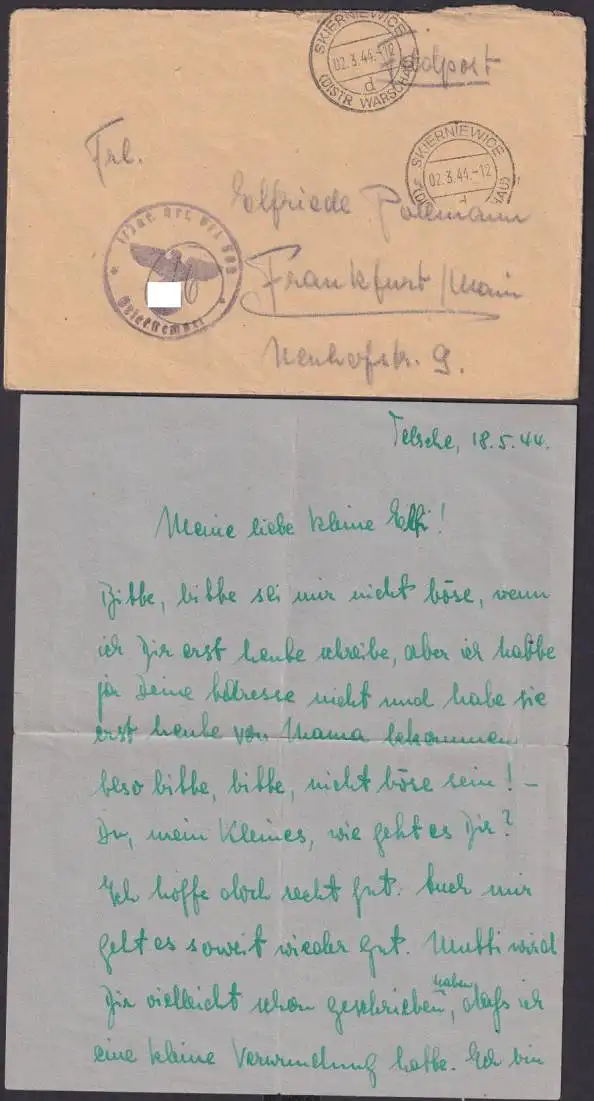 SKIERNIEWICE
02.3.44.-12
d
(DISTR WARSCHAU)
Feldpost
SKIERNIEWICE
02.3.44.-12
d
Frl.
Elfriede Pollmann
Frankfurt/Main
Neuhofstr. 9.
Briefstempel
Telsche, 18.5.44.
Meine liebe kleine Elfi!
Bitte, bitte sei mir nicht böse, wenn
ich Dir erst heute schreibe, aber ich hatte
ja Deine Adresse nicht und habe sie
erst heute von Mama bekommen
Also bitte, bitte, nicht böse sein! -
Du, mein Kleines, wie geht es Dir?
Ich hoffe doch recht gut. Auch mir
geht es soweit wieder gut. Mutti wird
Dir vielleicht schon geschrieben haben, daß ich
eine kleine Verwundung hatte. Ich bin